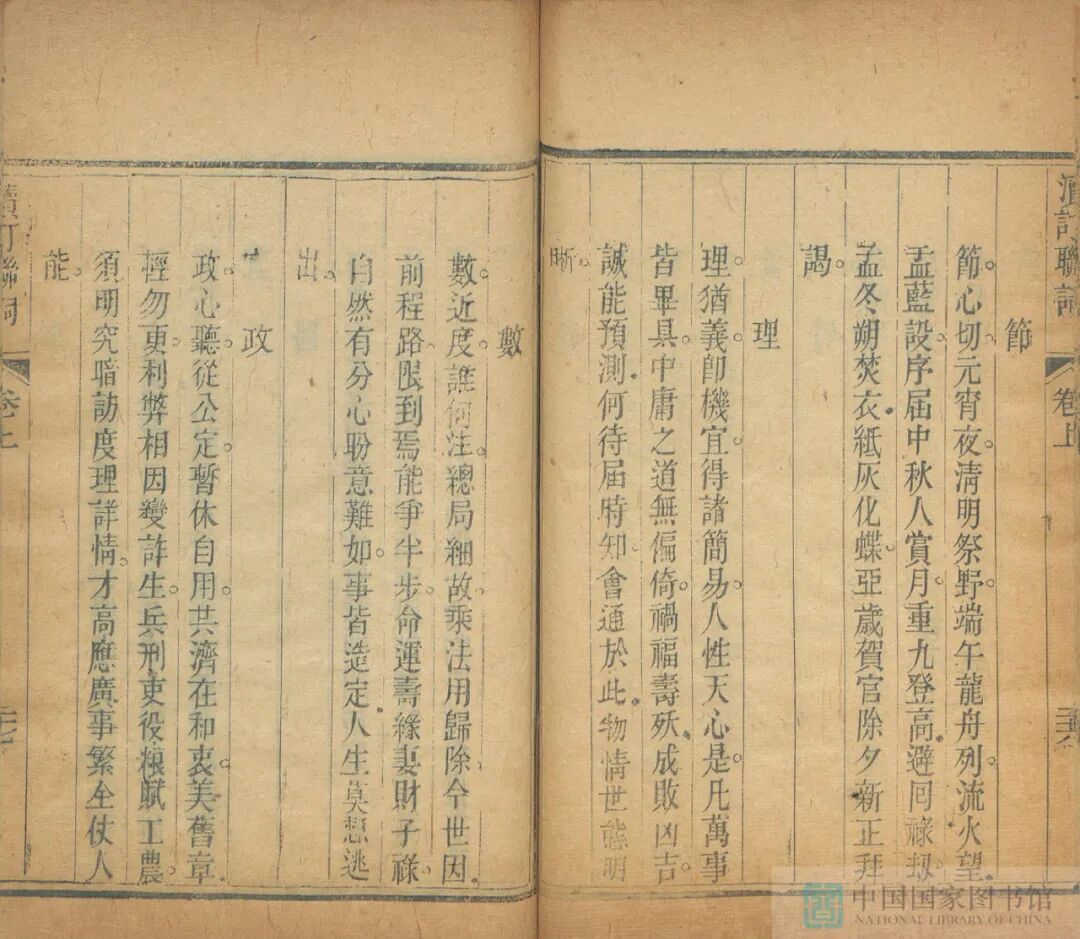 節
節心切元宵夜清明祭野端午龍舟列流火望
盂藍設序届中秋人賞月重九登高避囘祿刼
孟冬朔焚衣紙灰化蝶亞歲賀官除夕新正拜
謁
理
理猶義卽機宜得諸簡易人性天心是凡萬事
皆畢具中庸之道無偏倚禍福壽殀成敗凶吉
誠能預測何待届時知會通於此物情世態明
晰
數
數近度誰何注總局細故乘法用歸除今世因
前程路限到焉能爭半步命運壽緣妻財子祿
自然有分心盼意難如事皆造定人生莫想逃
出
政
政心聽從公定暫休自用共濟在和衷美舊章
輕勿更利弊相因變詐生兵刑吏役粮賦工農
須明究暗訪度理詳情才高應廣事繁全仗人
能
聯詞
卷上
卷上
中国国家图书馆
NATIONAL LIBRARY OF CHINA